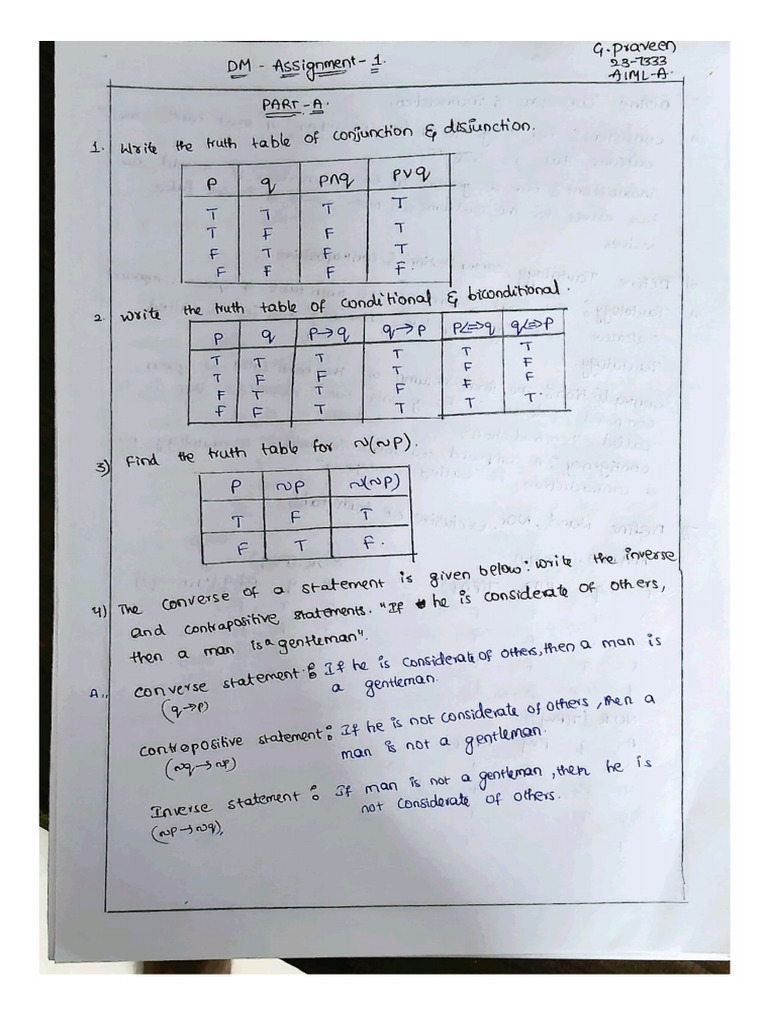 DM - Assignment - 1.
G. Praveen
23-7333
AIML-A.
PART-A.
1. Write the truth table of conjunction & disjunction.
P q P∧q P∨q
T T T T
T F F T
F T F T
F F F F.
2. Write the truth table of conditional & biconditional.
P q P→q q→P P<=>q q<=>P
T T T T T T
T F F T F F
F T T F F F
F F T T T T.
3) Find the truth table for ~(~P).
P ~P ~(~P)
T F T
F T F.
4) The converse of a statement is given below: write the inverse
and contrapositive statements. "If he is considerate of others,
then a man is a gentleman".
A., converse statement: If he is considerate of others, then a man is
(q→P) a gentleman.
contrapositive statement: If he is not considerate of others, then a
(~q→~p) man is not a gentleman.
Inverse statement: If man is not a gentleman, then he is
(~P→~q), not considerate of others.